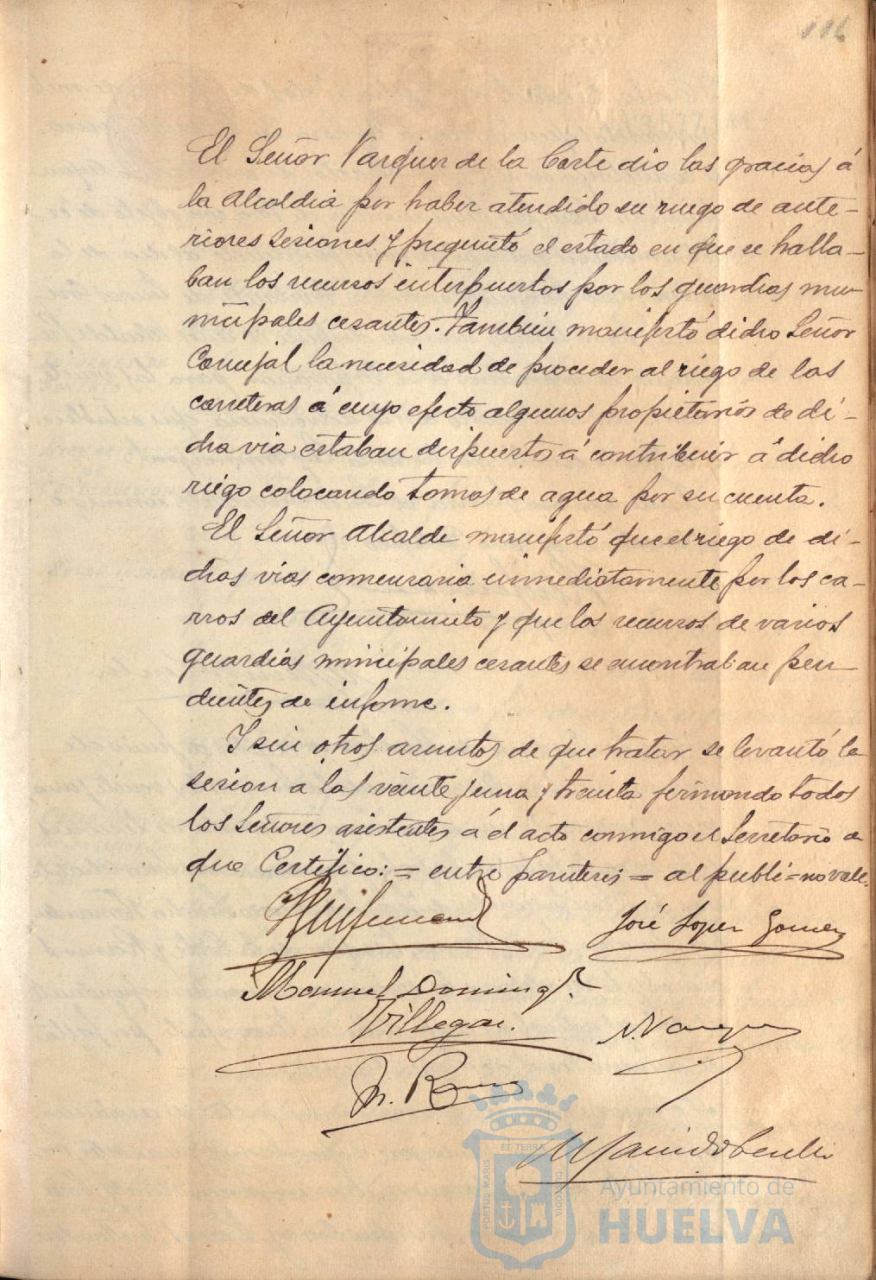 116
El Señor Vazquez de la Corte dio las gracias á
la Alcaldia por haber atendido su ruego de ante-
riores sesiones y preguntó el estado en que se halla-
ban los recursos interpuestos por los guardias mu-
nicipales cesantes. Tambien manifestó dicho Señor
Concejal la necesidad de proceder al riego de las
carreteras á cuyo efecto algunos propietarios de di-
cha via estaban dispuestos á contribuir á dicho
riego colocando tomas de agua por su cuenta.
El Señor Alcalde manifestó que el riego de di-
chas vias comenzaria inmediatamente por los ca-
rros del Ayuntamiento y que los recursos de varios
guardias municipales cesantes se encontraban pen-
dientes de informe.
Y sin otros asuntos de que tratar se levantó la
sesion a las veinte y una y treinta firmando todos
los Señores asistentes á el acto conmigo el Secretario de
que Certifico: = entre parentesis = al publi = no vale.
José Lopez Gomez
Manuel Domingz.
Villegas.
ET TERRA
PORTUS MARIS
CUSTODIA
Ayuntamiento de
HUELVA